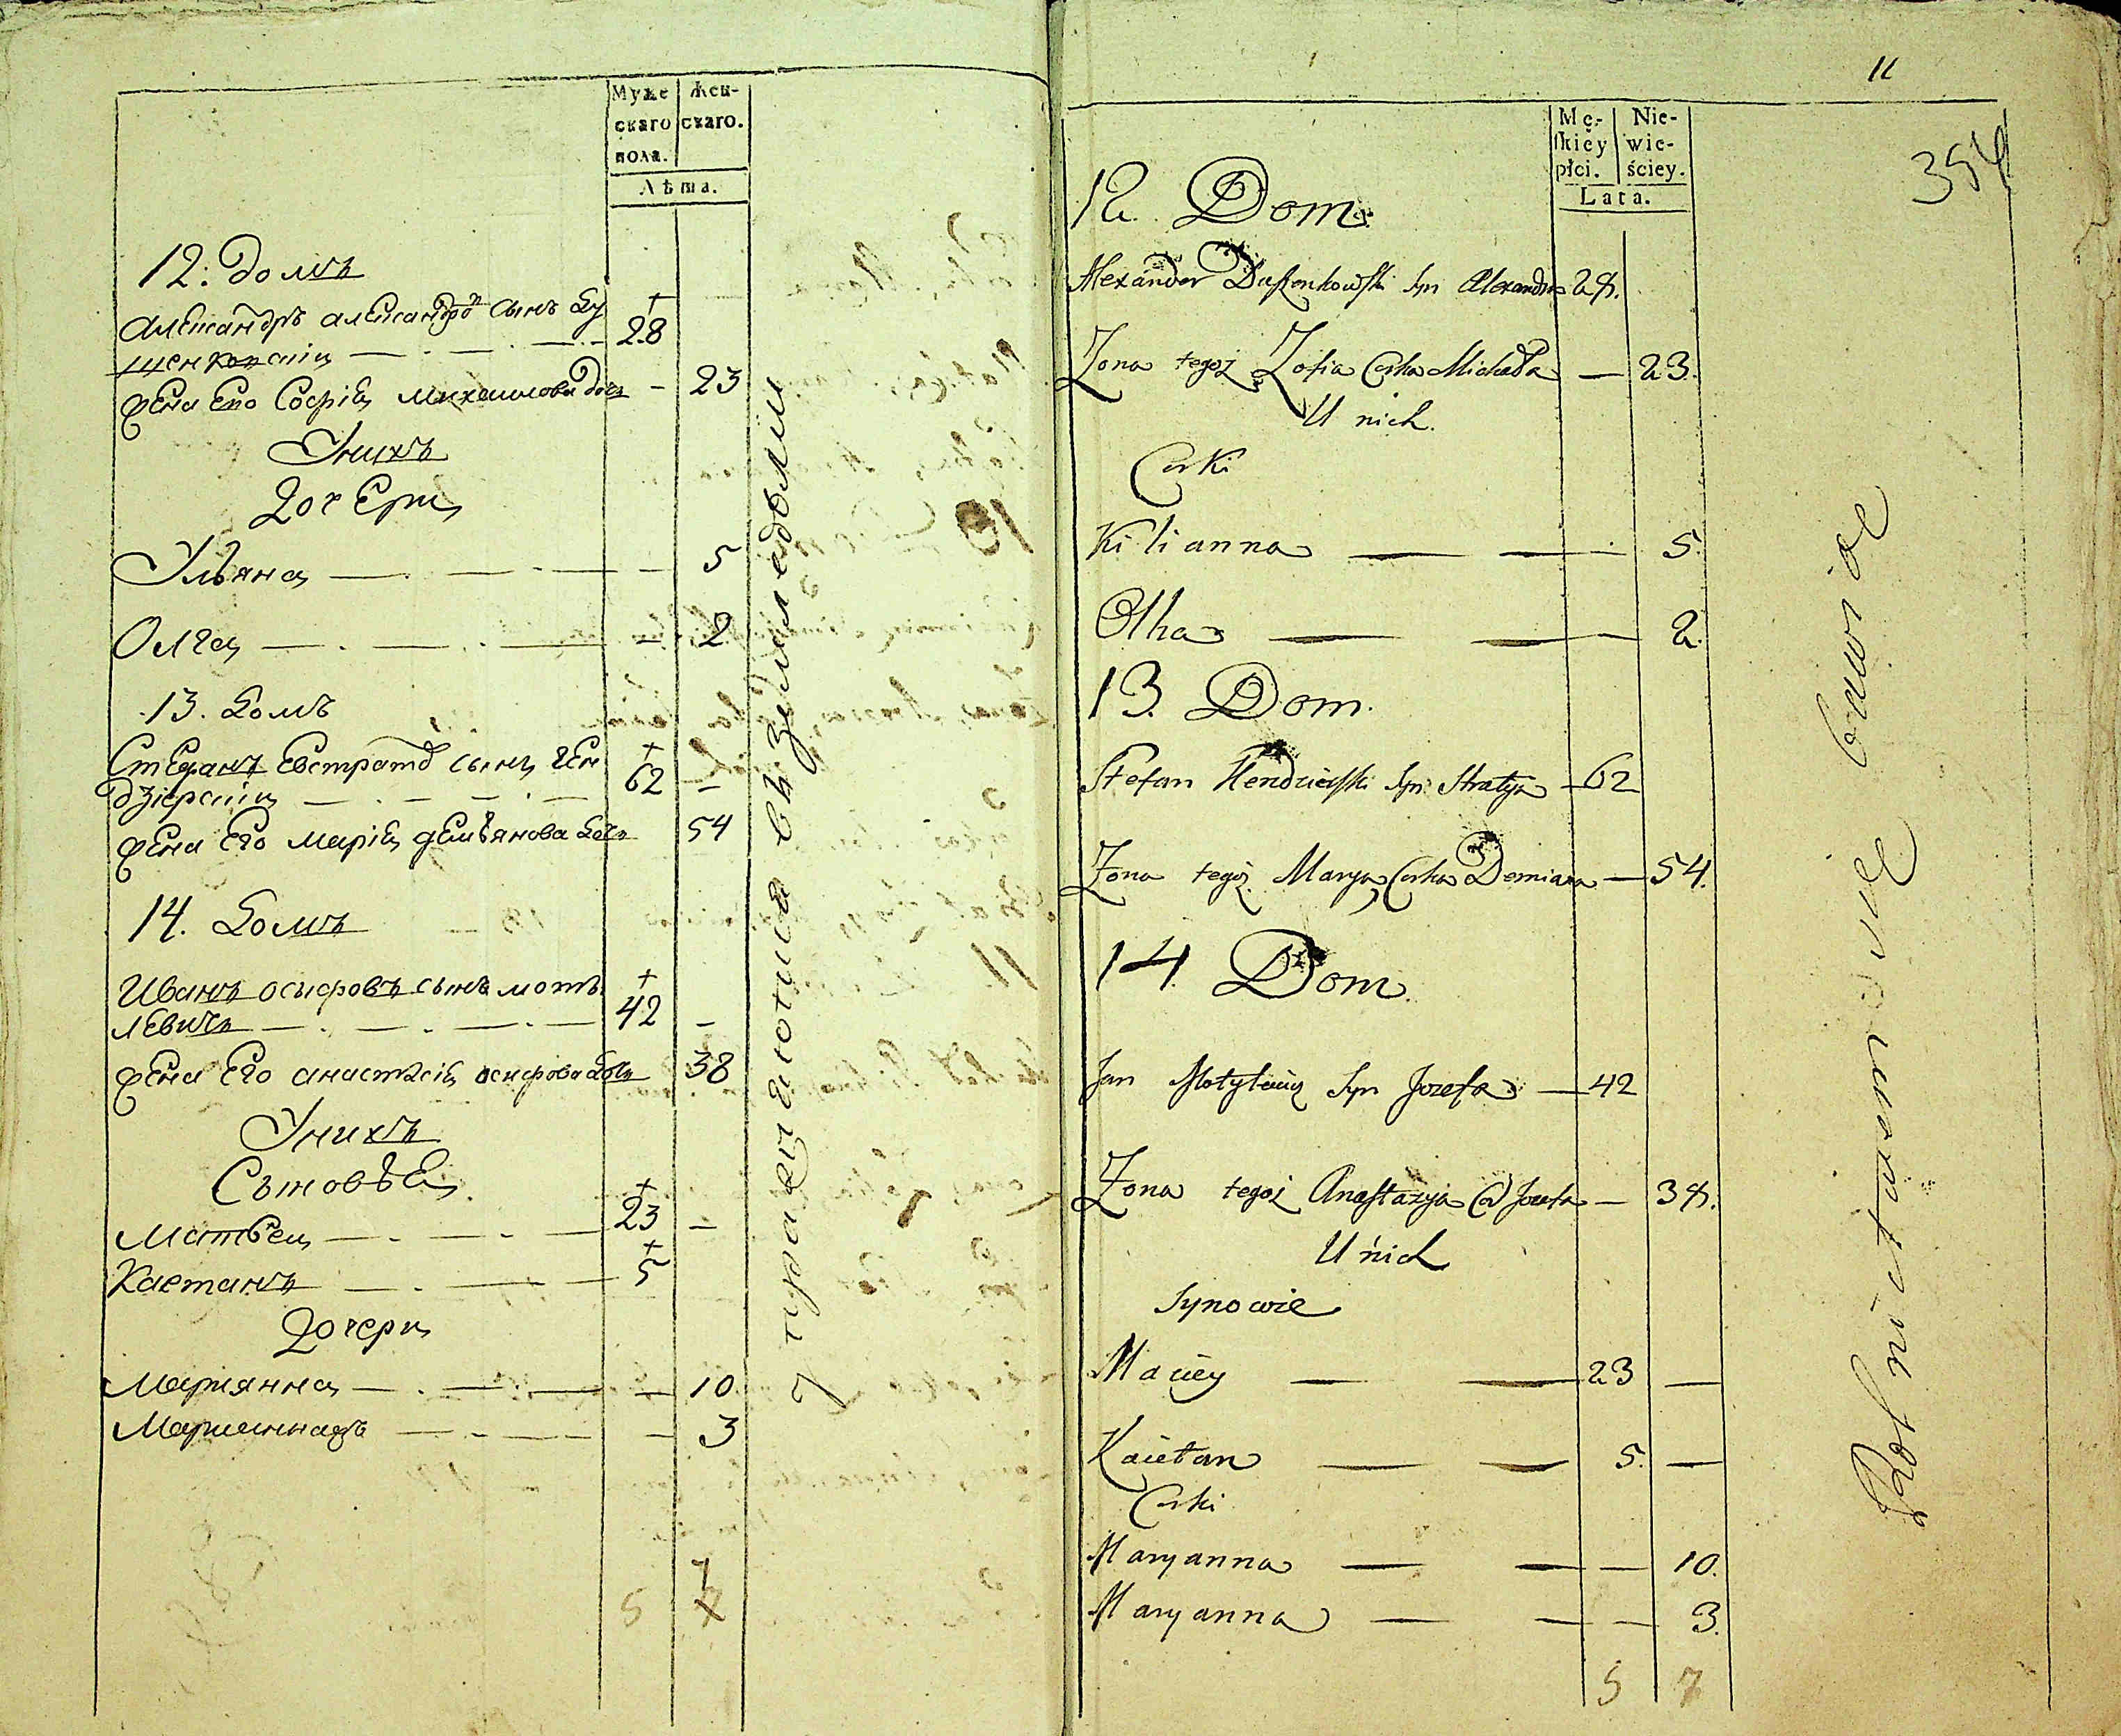 Муже
скаго
пола.
Жен-
скаго.
Лѣта.
12: домъ
Александръ александро сынъ Ду
щенковскiи 28
жена Его Софiя михаилова дочь 23
Унихъ
Дочери
Ульяна 5
Олга 2
13. Домъ
Стефанъ Евстратов сынъ ген
дзiерскiи 62
жена Его марiя демьянова дочь 54
14. Домъ
Иванъ осифовъ сынъ моты
левичъ 42
жена Его анастасiя осифова дочь 38
Унихъ
Сыновья
матвеи 23
Каетанъ 5
Дочери
Мариянна 10
Марианна 3
7
5
в земледелии
11
354
Mę-
skiey
płci.
Nie-
wie-
ściey.
Lata.
12. Dom
Alexander Duszenkowski Syn Alexandra 28.
Zona tegoż Zofia Corka Michała 23.
U nich.
Corki
Kilianna 5.
Olha 2.
13. Dom.
Stefan Hendzierski Syn Stratyna 62
Zona tegoż Marya Corka Demiana 54.
14. Dom.
Jan Motylewicz Syn Jozefa 42
Zona tegoż Anastazya Cor Jozefa 38.
U nich
Synowie
Maciey 23
Kaietan 5.
Corki
Maryanna 10.
Maryanna 3.
5 7
Rolnictwem się bawiąc